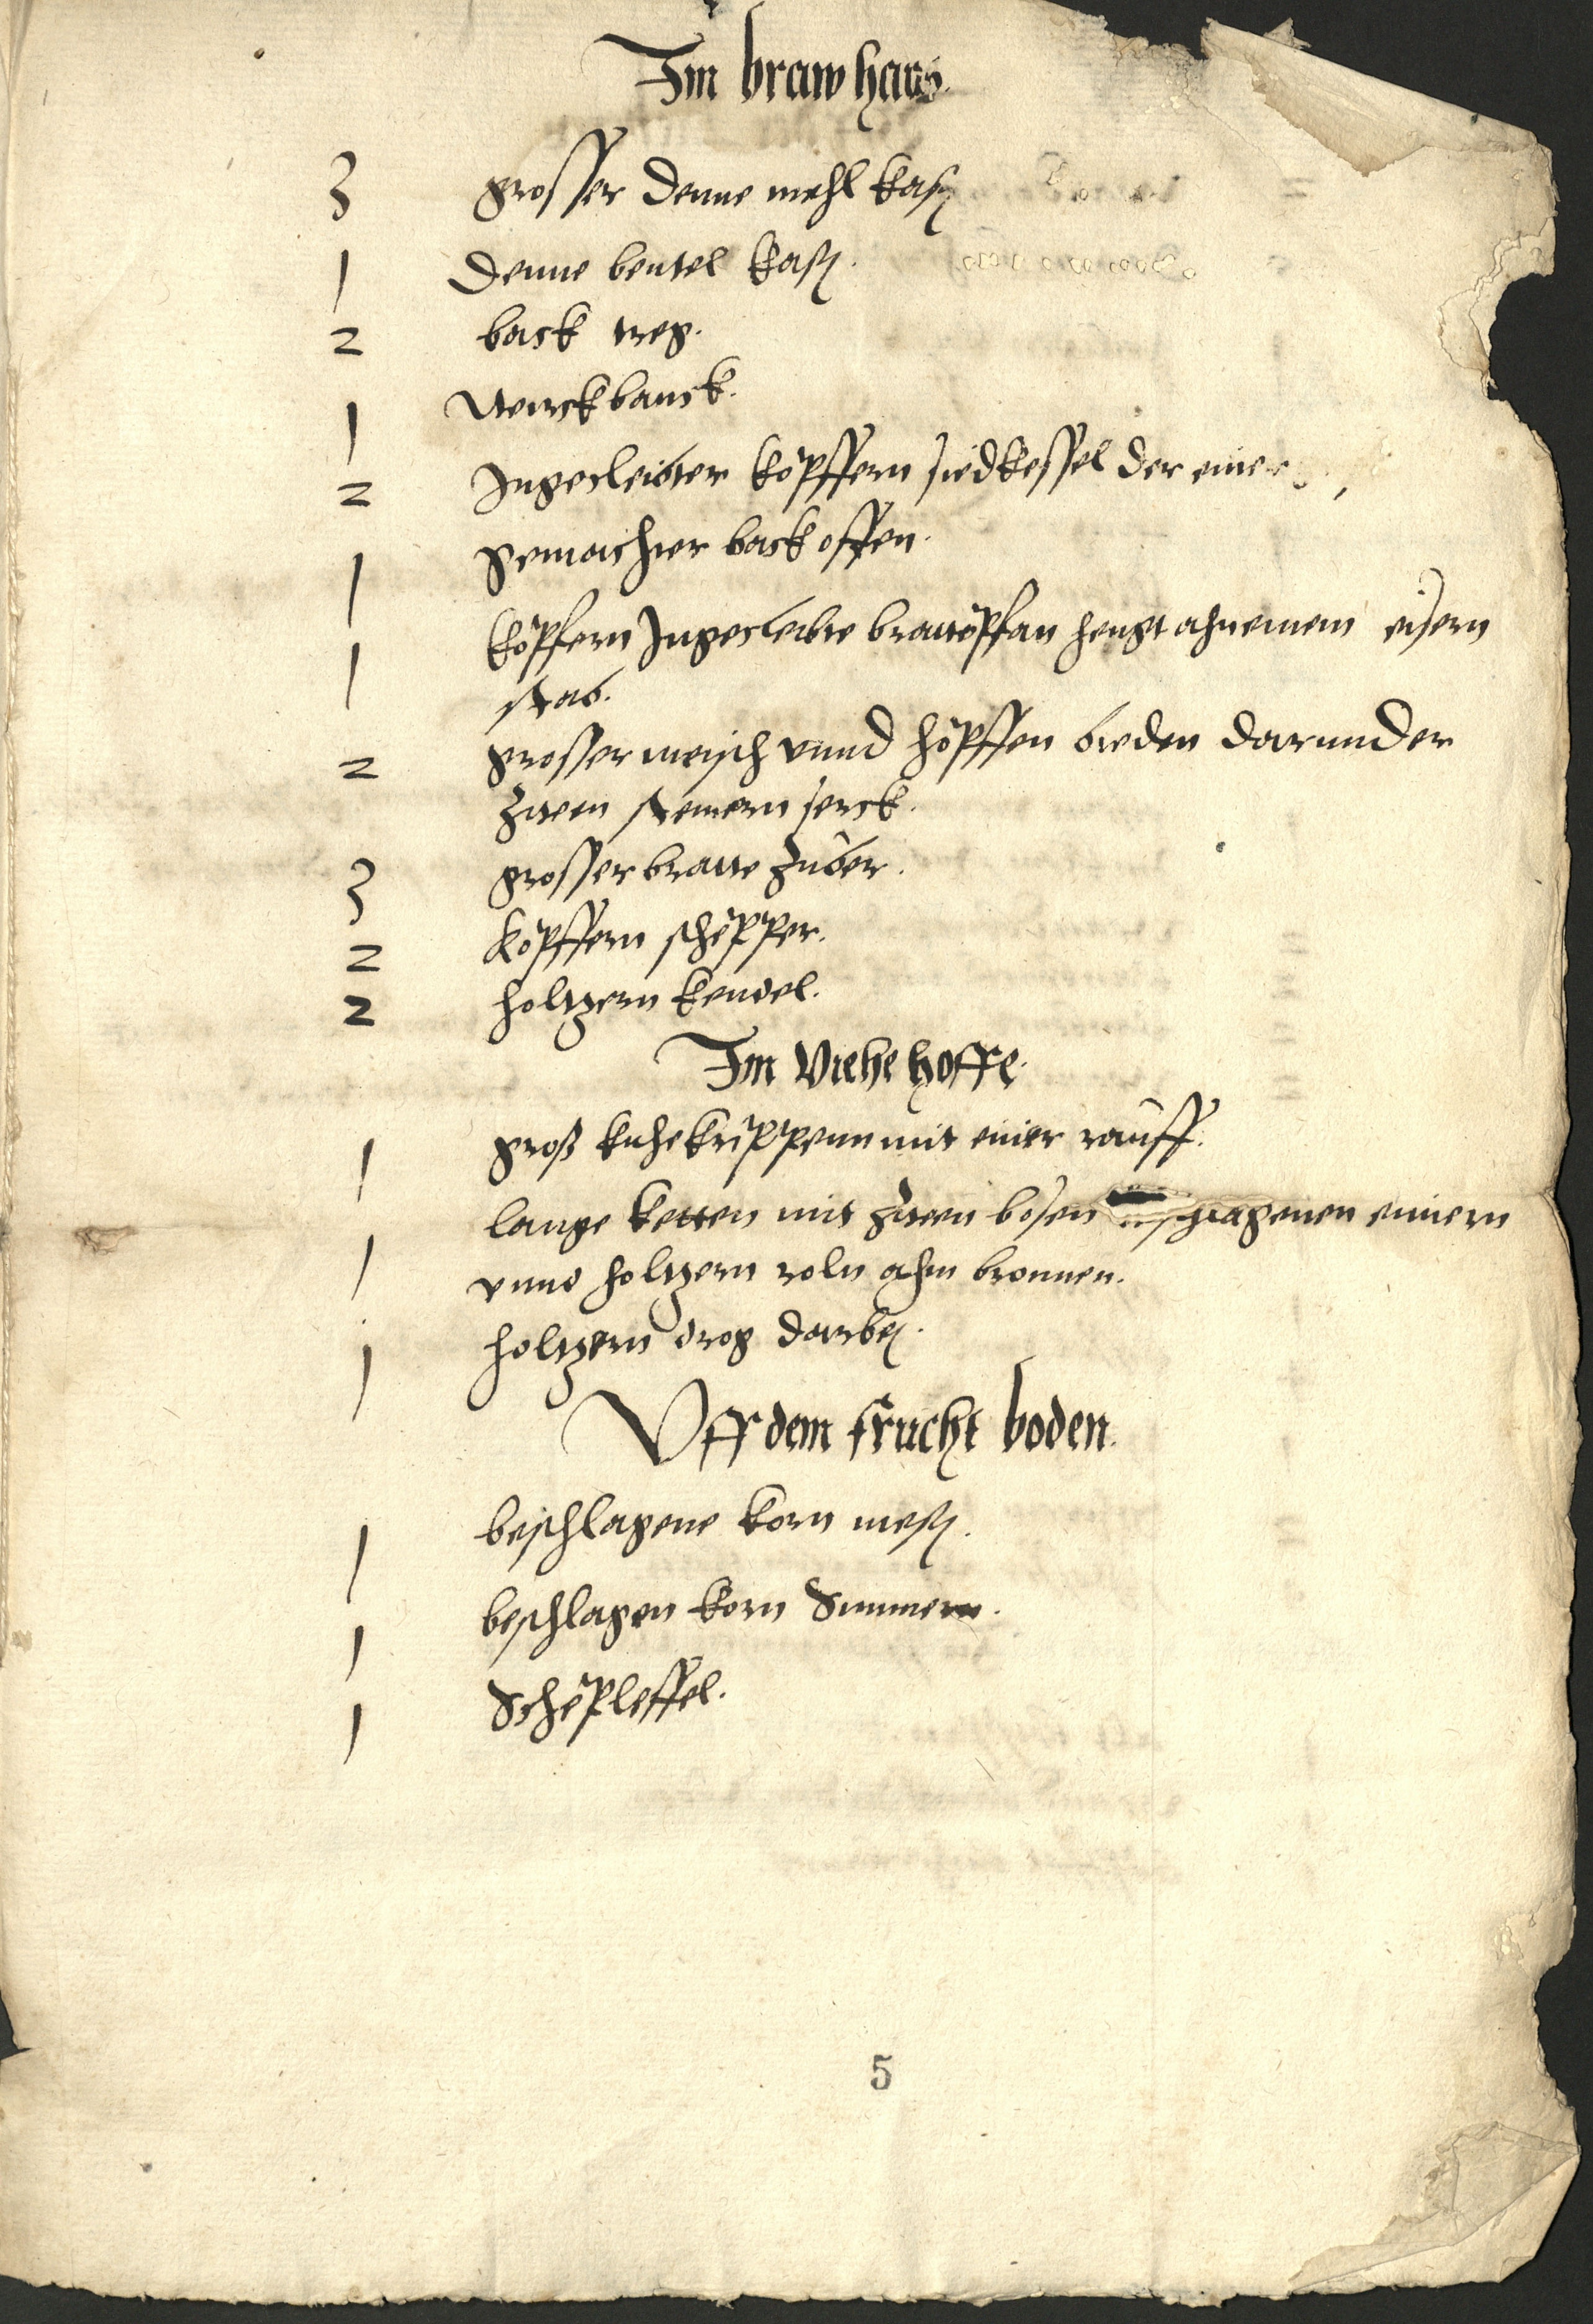 Im braw haus.
3 grosser denne mehl kasten
1 denne beutel kasten.
2 back treg.
1 Werckbanck.
2 Ingecleibter köpffern siedkessel der einer
1 gemachter back offen.
1 köpffern Ingecleibte brawpfan hengt ahn einem eisern
stab.
2 grosser meisch vnnd höpffen bieden darunder
zween steinern serck.
3 grosser brawe züber.
2 köpffern schepper.
2 holtzern kendel.
Im Viehe hoffe.
1 groß kuhe krippenn mit einer rauff.
1 lange ketten mit zween bösen eimern
vnnd holtzern roln ahm bronnen.
1 holtzern drog darbey.
Vff dem frucht boden.
1 beschlagene korn mesten.
1 beschlagen korn Simmern.
1 Schepleffel.
5